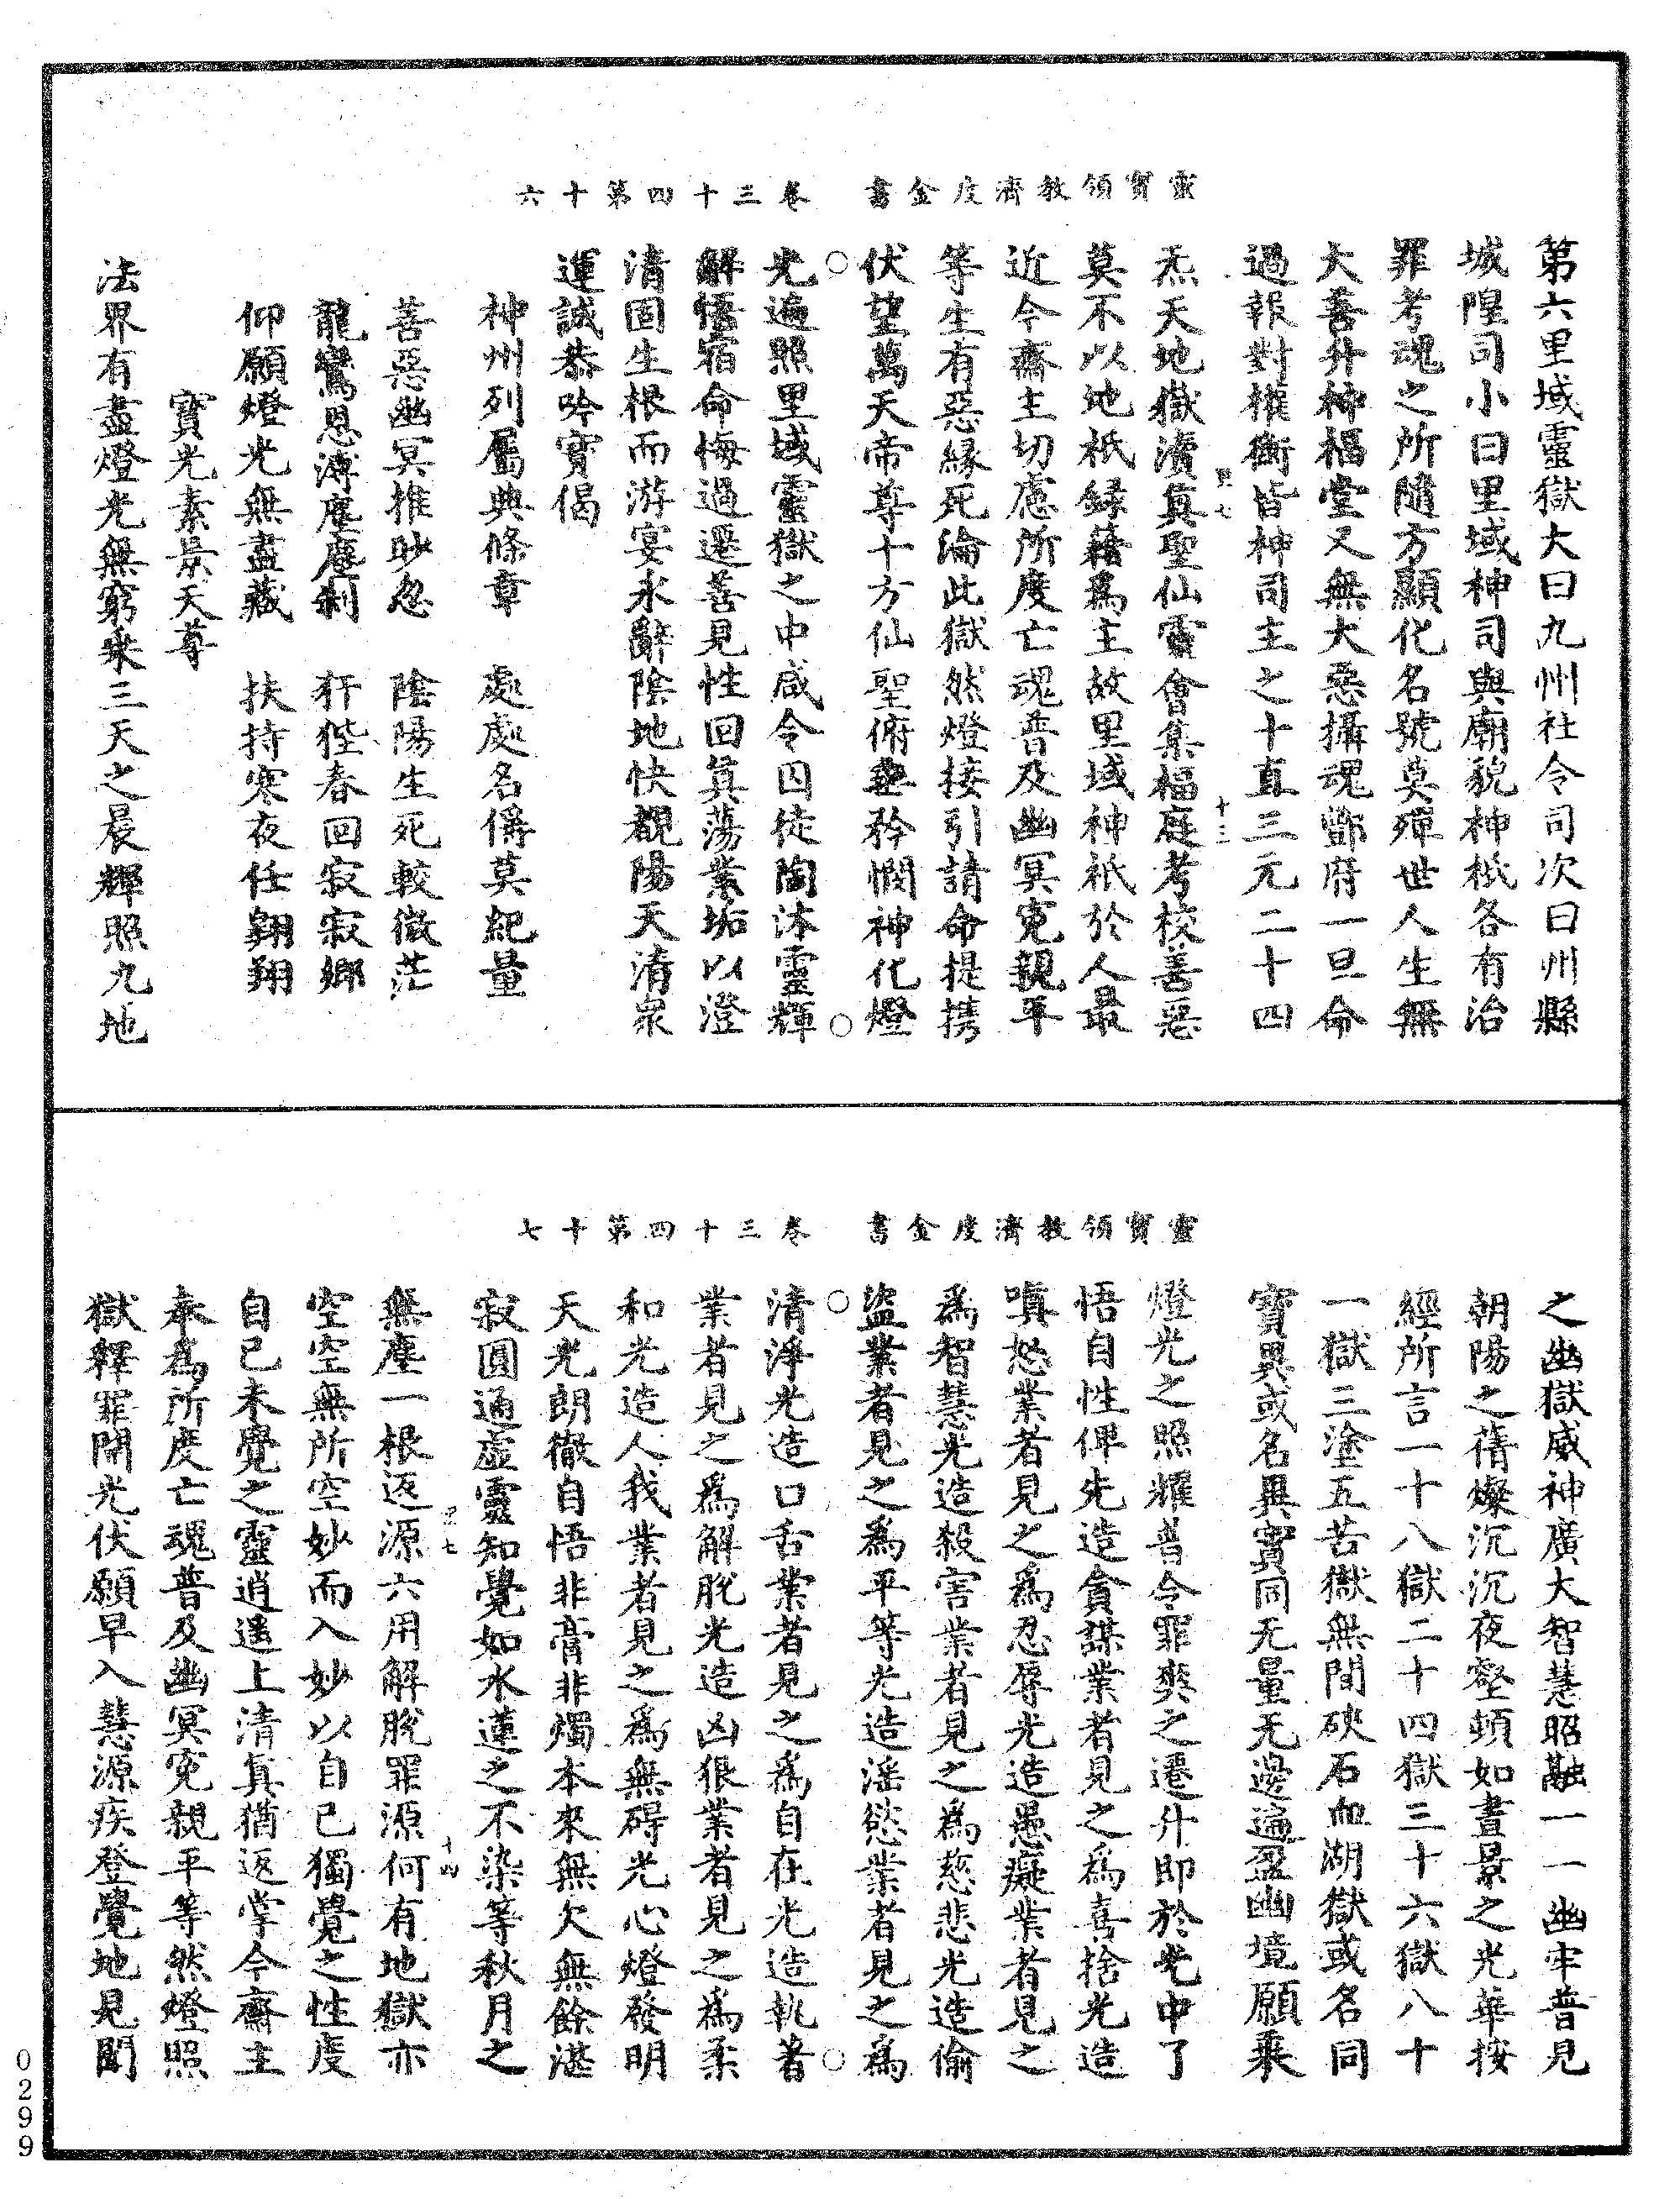 靈寶領教濟度金書　卷三十四第十六
第六里域靈獄大曰九州社令司次曰州縣
城隍司小曰里域神司與廟貌神祇各有治
罪考魂之所隨方顯化名號莫殫世人生無
大善升神福堂又無大惡攝魂酆府一旦命
過報對權衡皆神司主之十直三元二十四
炁天地嶽瀆真聖仙靈會集福庭考校善惡
莫不以地祇録籍為主故里域神祇於人最
近今齋主切慮所度亡魂普及幽冥寃親平
等生有惡緣死淪此獄然燈接引請命提携
伏望萬天帝尊十方仙聖俯垂矜憫神化燈
光遍照里域靈獄之中咸令囚徒陶沐靈輝
解悟宿命悔過遷善見性回真蕩業垢以澄
清固生根而游宴永辭陰地快覩陽天清衆
運誠恭吟寶偈
神州列屬典條章　處處名僞莫紀量
善惡幽冥推眇忽　陰陽生死較微茫
龍鸞恩溥塵塵刹　犴狴春回寂寂鄉
仰願燈光無盡藏　扶持寒夜任翱翔
寶光素景天尊
法界有盡燈光無窮乘三天之晨輝照九地
靈寶領教濟度金書　卷三十四第十七
之幽獄威神廣大智慧昭融一一幽牢普見
朝陽之蒨燦沉沉夜壑頓如晝景之光華按
經所言一十八獄二十四獄三十六獄八十
一獄三塗五苦獄無間硤石血湖獄或名同
實異或名異實同无量无邊遍盈幽境願乘
燈光之照耀普令罪爽之遷升即於光中了
悟自性俾先造貪謀業者見之為喜捨光造
嗔怒業者見之為忍辱光造愚癡業者見之
為智慧光造殺害業者見之為慈悲光造偷
盜業者見之為平等光造淫慾業者見之為
清淨光造口舌業者見之為自在光造執著
業者見之為解脫光造凶狠業者見之為柔
和光造人我業者見之為無碍光心燈發明
天光朗徹自悟非膏非燭本來無欠無餘湛
寂圓通虛靈知覺如水蓮之不染等秋月之
無塵一根返源六用解脫罪源何有地獄亦
空空無所空妙而入妙以自已獨覺之性度
自已未覺之靈逍遙上清真猶返掌今齋主
奉為所度亡魂普及幽冥寃親平等然燈照
獄釋罪開光伏願早入慧源疾登覺地見聞
0299